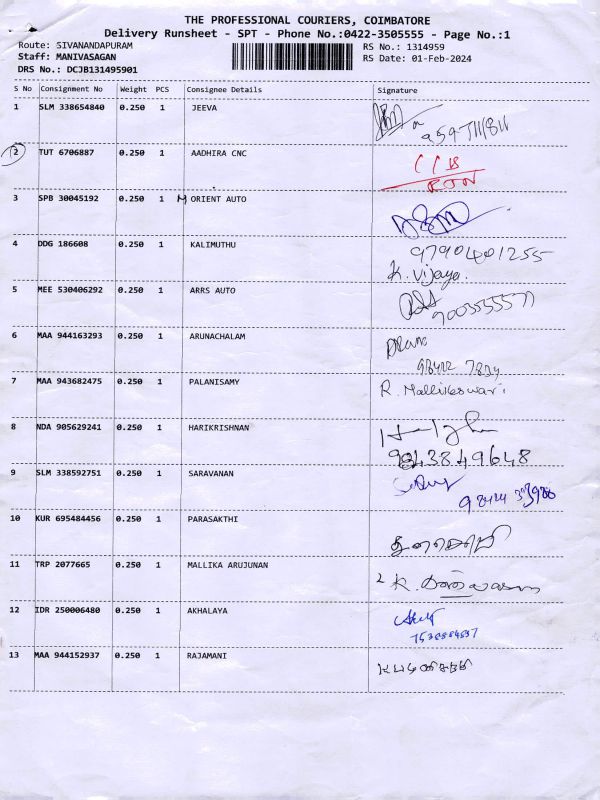 THE PROFESSIONAL COURIERS, COIMBATORE
Delivery Runsheet - SPT - Phone No.:0422-3505555 - Page No.:1
Route: SIVANANDAPURAM RS No.: 1314959
Staff: MANIVASAGAN RS Date: 01-Feb-2024
DRS No.: DCJB131495901
S No Consignment No Weight PCS Consignee Details Signature
1 SLM 338654840 0.250 1 JEEVA
2 TUT 6706887 0.250 1 AADHIRA CNC
RTN
3 SPB 30045192 0.250 1 M ORIENT AUTO
4 DDG 186608 0.250 1 KALIMUTHU 9790401255
K. Vijaya.
5 MEE 530406292 0.250 1 ARRS AUTO
6 MAA 944163293 0.250 1 ARUNACHALAM
7 MAA 943682475 0.250 1 PALANISAMY R. Mallikeswari
8 NDA 905629241 0.250 1 HARIKRISHNAN
9843849648
9 SLM 338592751 0.250 1 SARAVANAN
10 KUR 695484456 0.250 1 PARASAKTHI
11 TRP 2077665 0.250 1 MALLIKA ARUJUNAN
12 IDR 250006480 0.250 1 AKHALAYA
13 MAA 944152937 0.250 1 RAJAMANI